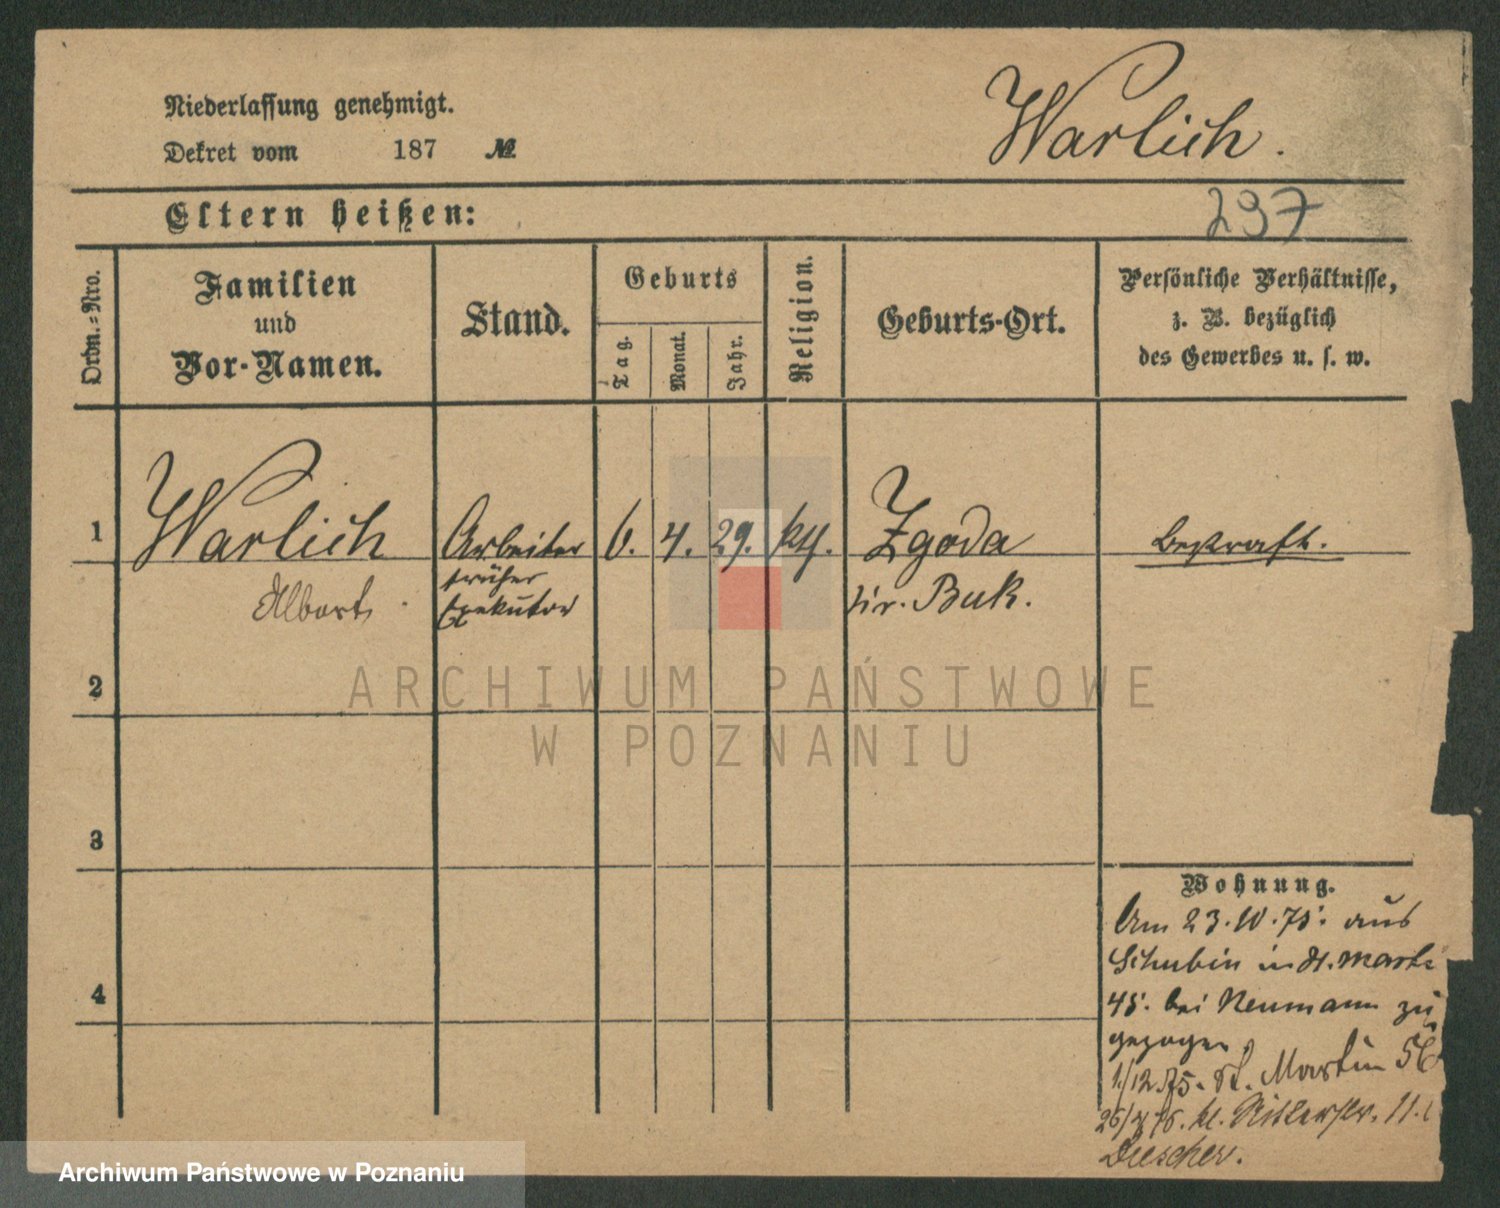 Niederlassung genehmigt.
Dekret vom 187 №
Warlich.
297
Eltern heißen:
Ordn.-Nro.
Familien
und
Vor-Namen.
Stand.
Geburts
Tag.
Monat.
Jahr.
Religion.
Geburts-Ort.
Persönliche Verhältnisse,
z. B. bezüglich
des Gewerbes u. s. w.
1 Warlich Arbeiter 6. 4. 29. Zgoda bestraft.
Albert früher Exekutor Kr. Buk.
2
3
4
Wohnung.
Am 23. 75. aus
Schubin in St. Martin
45. bei Neumann zu
gezogen.
1/12 75. St. Martin 56
26/ 76. kl. Ritterstr. 11.
ARCHIWUM PAŃSTWOWE
W POZNANIU
Archiwum Państwowe w Poznaniu